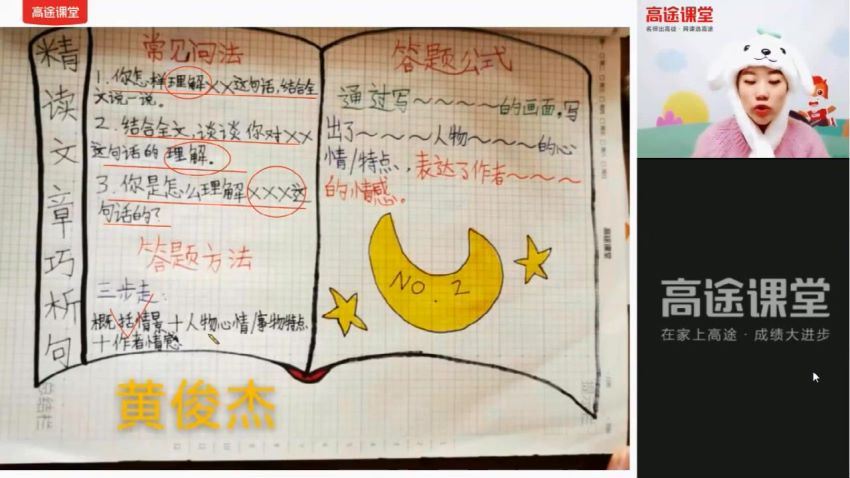 高途课堂
精读文章巧析句
常见问法
1.你怎样理解××这句话,结合全
文说一说。
2.结合全文,谈谈你对××
这句话的理解。
3.你是怎么理解×××这
句话的?
答题方法
三步走:
概括情景+人物心情/事物特点
+作者情感
答题公式
通过写~~~~的画面,写
出了~~~人物~~~的心
情/特点,表达了作者~~~
的情感。
NO.2
黄俊杰
高途课堂
名师出高徒·网课选高途
高途课堂
在家上高途·成绩大进步